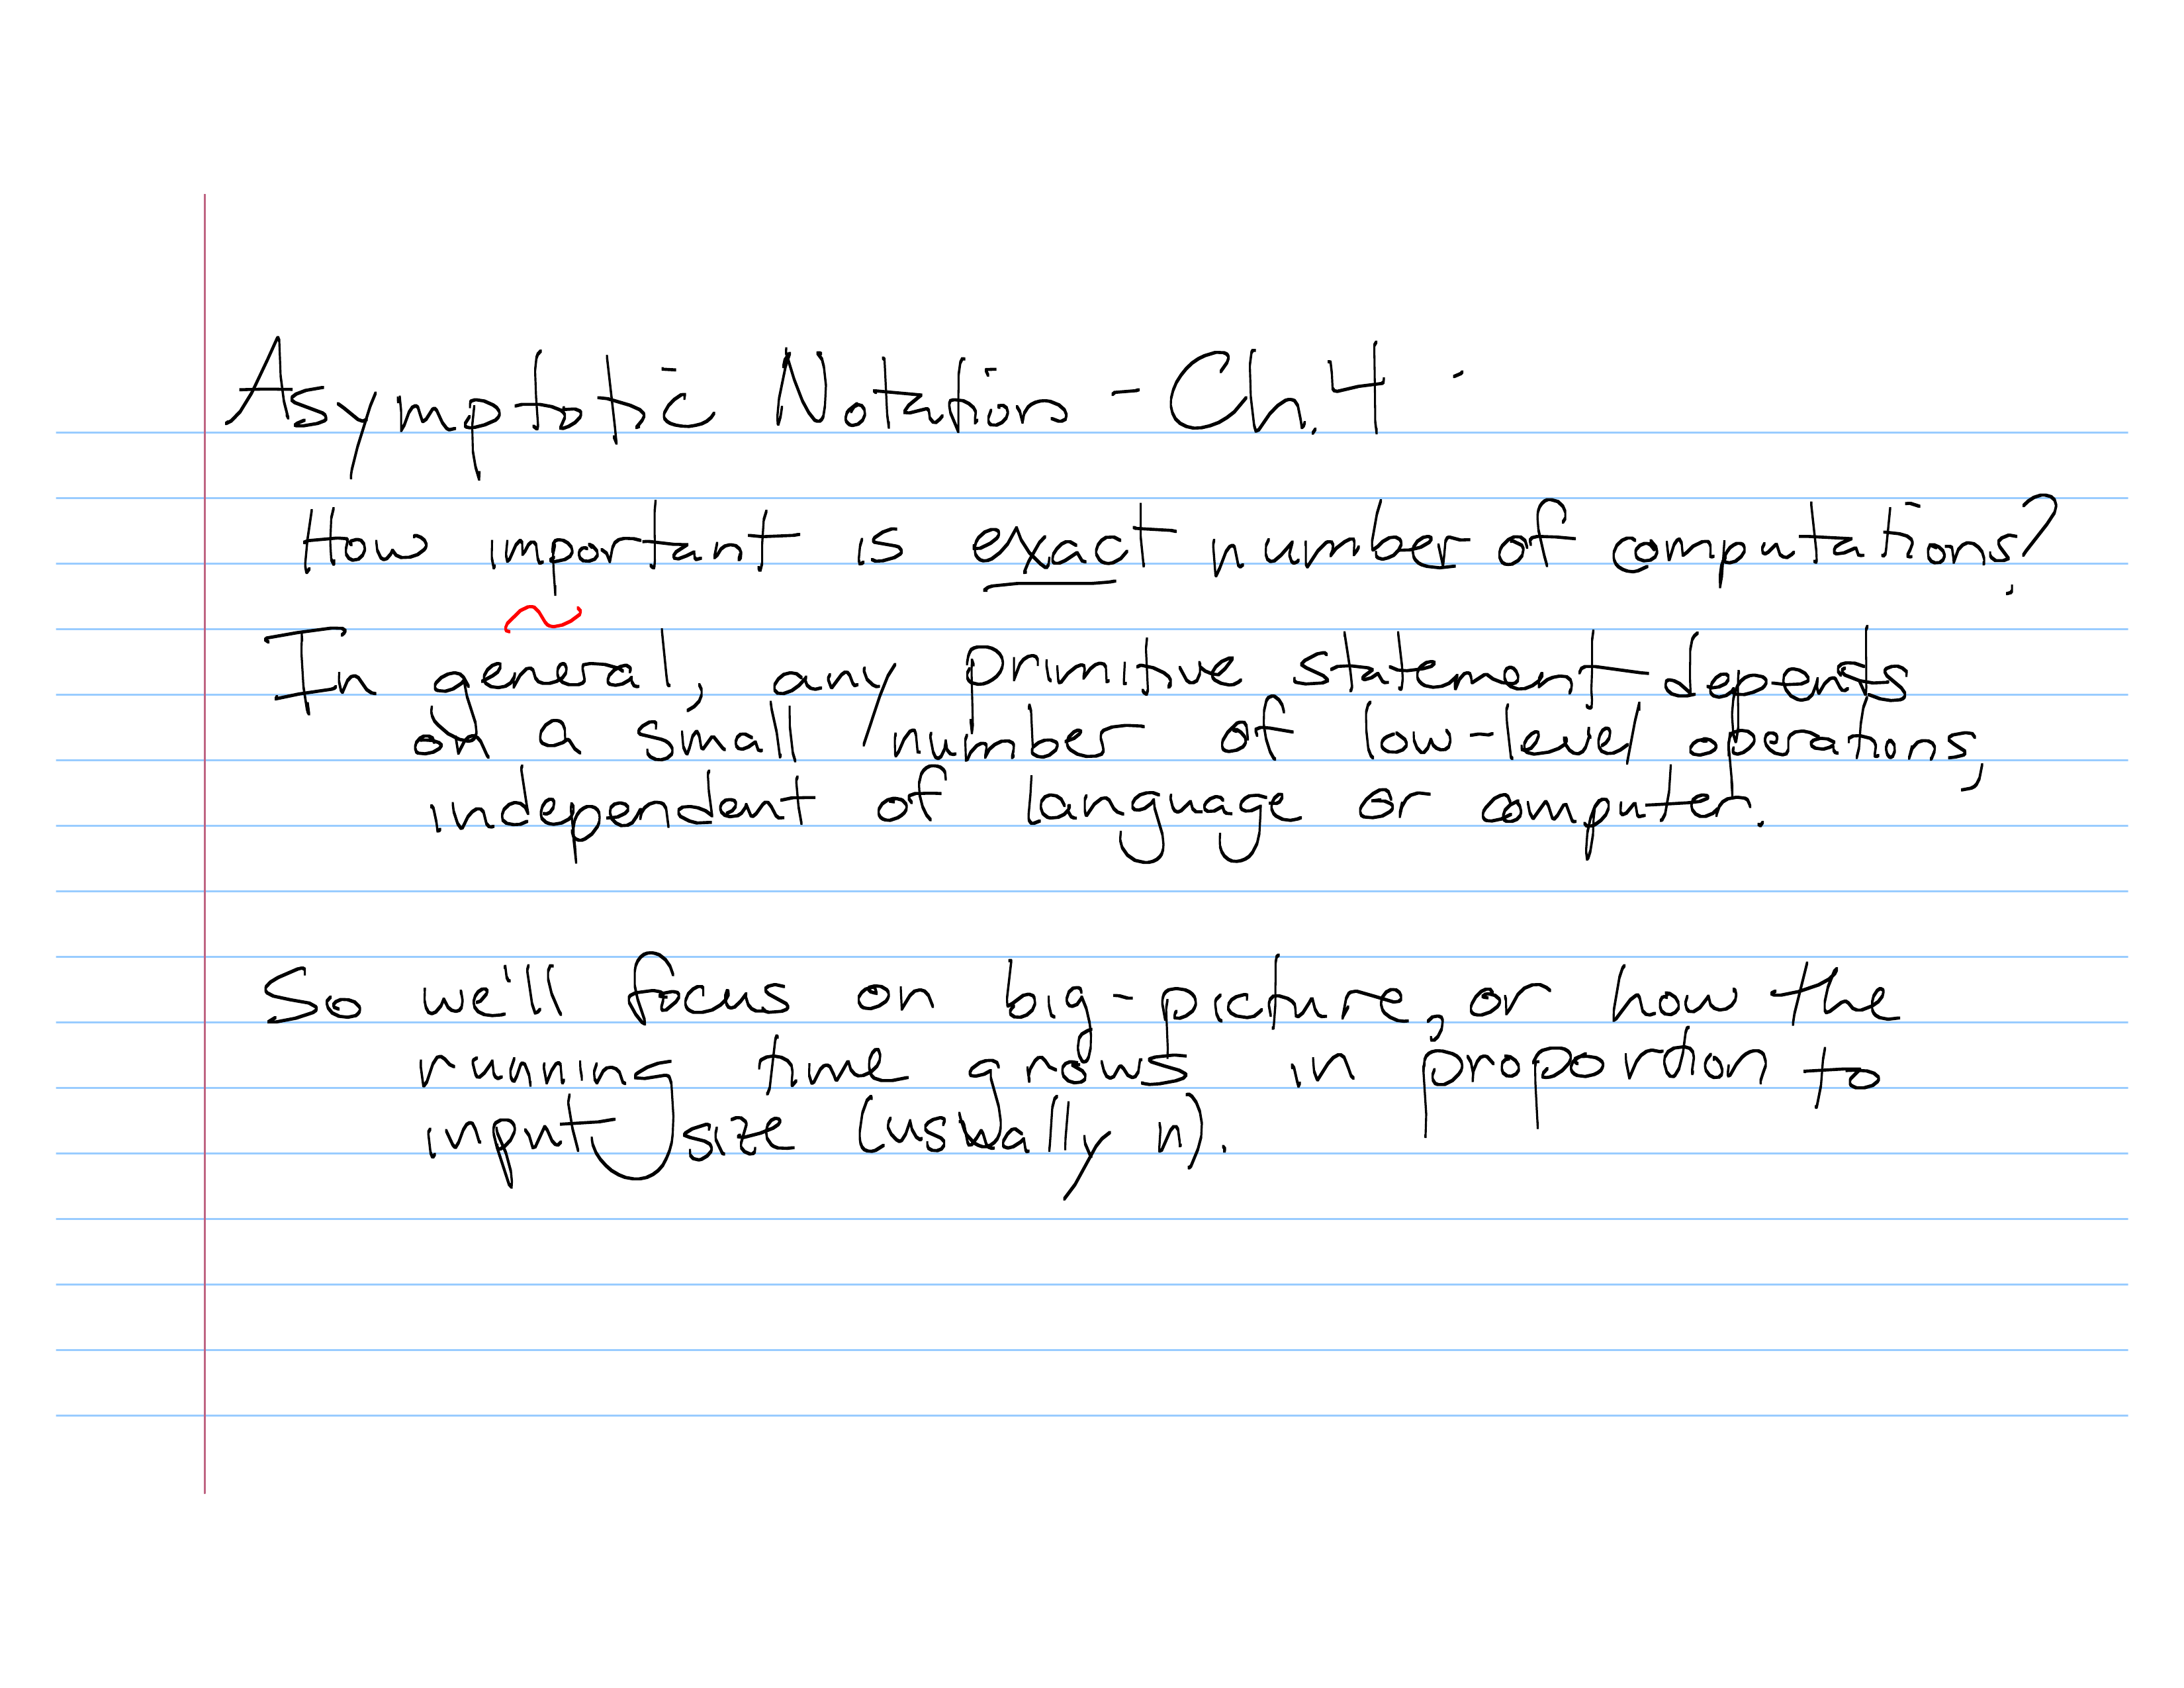 Asymptotic Notation - Ch. 4 -
How important is exact number of computations?
In general, any primitive statement depends
on a small number of low-level operations,
independent of language or computer.
So we'll focus on big-picture, or how the
running time grows in proportion to
input size (usually n).